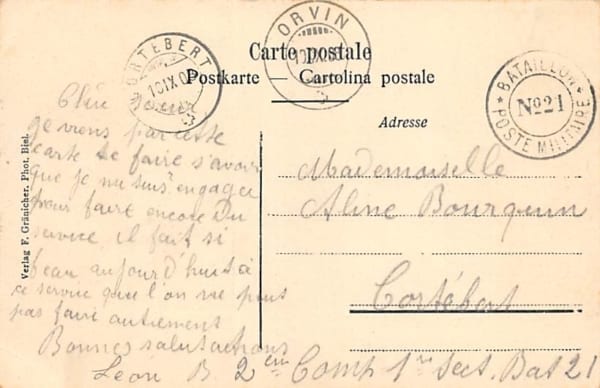 Carte postale
Postkarte — Cartolina postale
Adresse
ORVIN
CORTEBERT
10 IX 0
* BATAILLON *
No 21
POSTE MILITAIRE
Verlag F. Gränicher, Phot. Biel.
Chère Soeur
Je viens par cette
carte te faire s'avoir
que je me suis engager
pour faire encore Du
service, il fait si
beau aujourd'huit à
ce service que l'on ne peut
pas faire autrement
Bonnes salutations
Léon B 2em Comp 1re Sect. Bat 21
Mademoiselle
Aline Bourquin
Cortébert